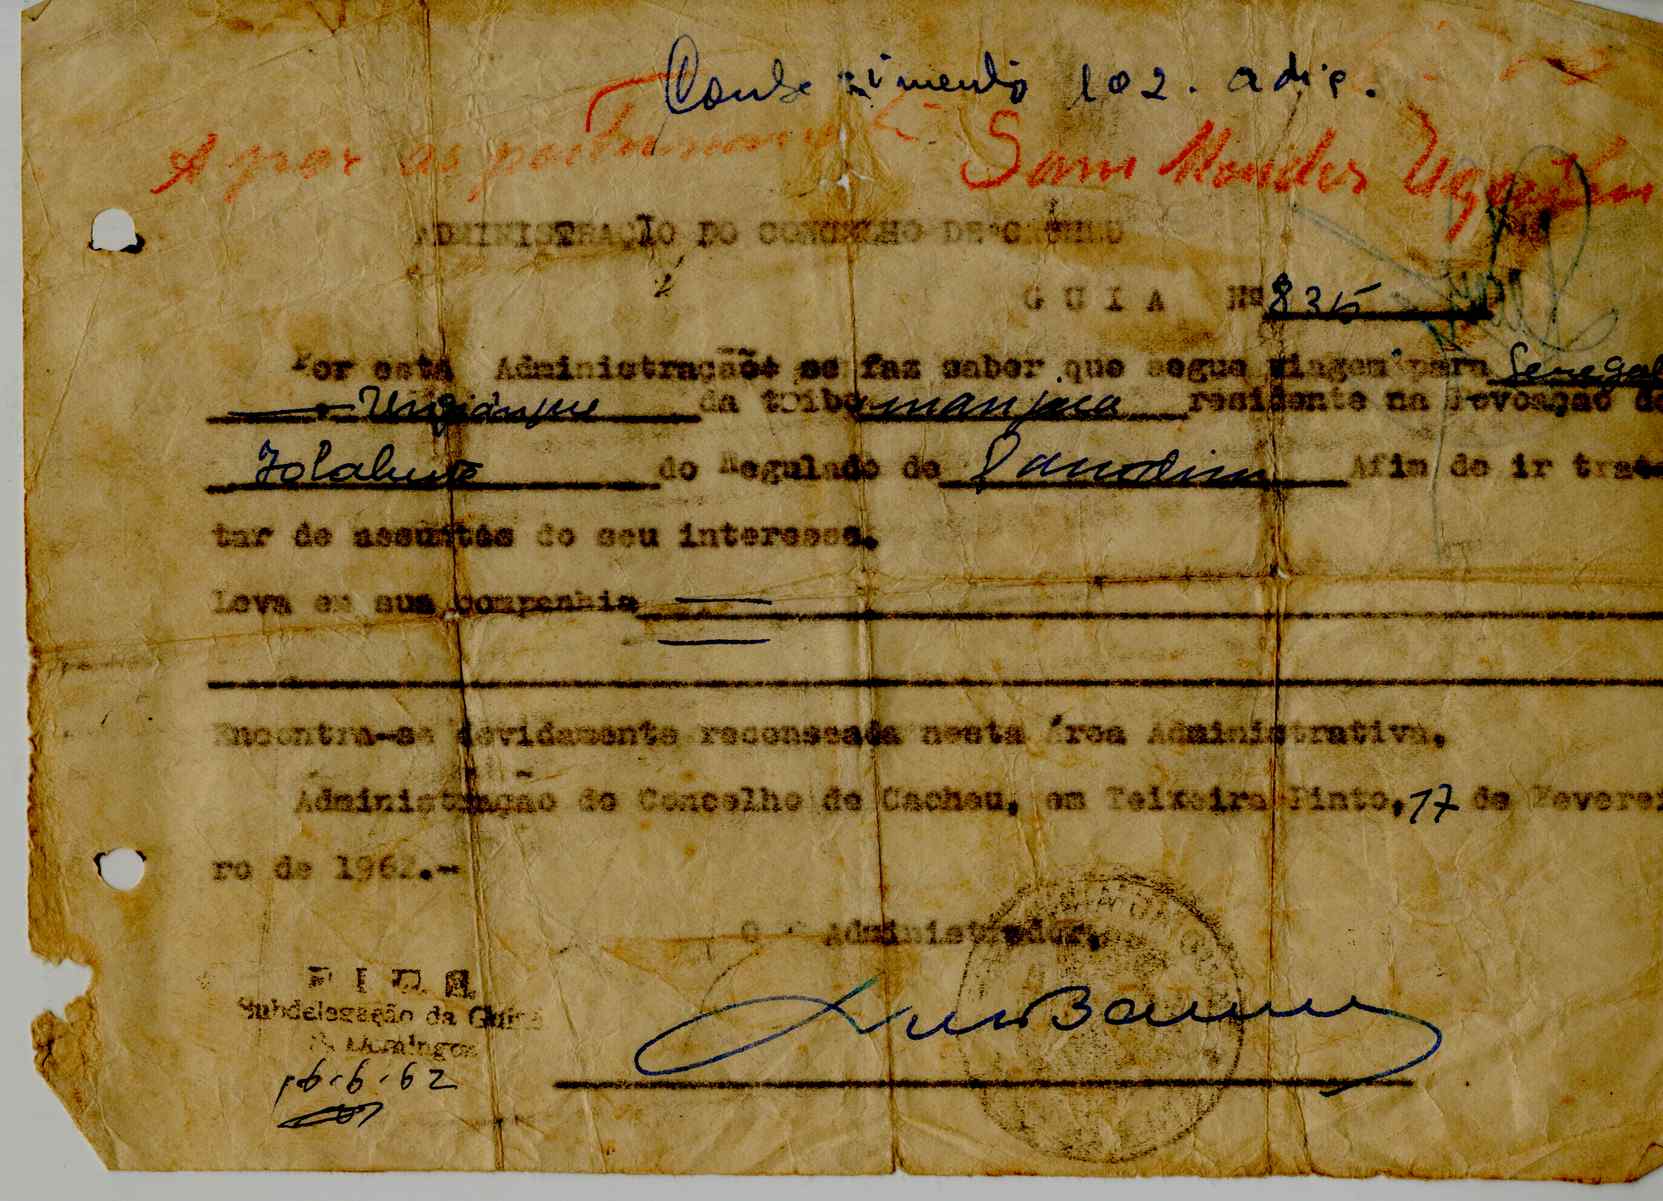 Conhecimento 102. adic.
A por as
Sam Mendes
ADMINISTRAÇÃO DO CONCELHO DE CACHEU
G U I A Nº 835
Por esta Administração se faz saber que segue viagem para Senegal
da tribo manjaca residente na Povoação de
do Regulado de Afim de ir trata
tar de assuntos do seu interesse.
Leva em sua companhia
Encontra-se devidamente recenseada nesta Área Administrativa.
Administração do Concelho de Cacheu, em Teixeira Pinto, 17 de Feverei
ro de 1962.-
O Administrador,
P I D E
Subdelegação da Guiné
S. Domingos
16-6-62